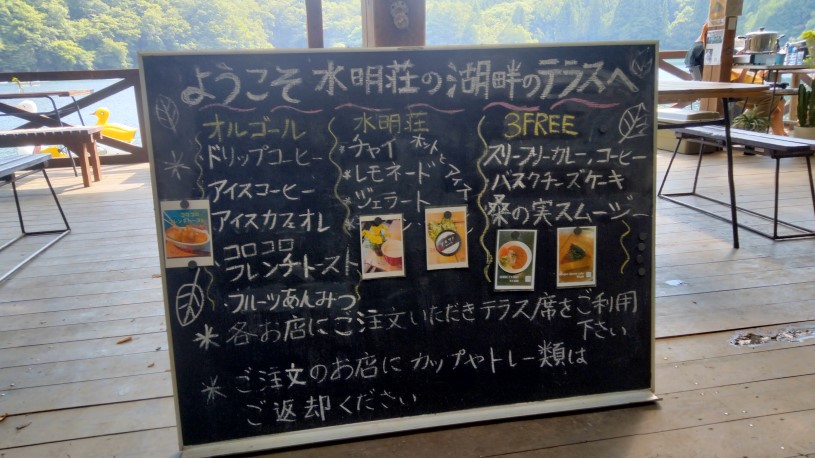 ようこそ 水明荘の湖畔のテラスへ
オルゴール
ドリップコーヒー
アイスコーヒー
アイスカフェオレ
コロコロ
フレンチトースト
フルーツあんみつ
水明荘
チャイ
レモネード
ホットとアイス
ジェラート
3FREE
スリーフリーカレー、コーヒー
バスクチーズケーキ
桑の実スムージー
※各お店にご注文いただきテラス席をご利用
下さい
※ご注文のお店に カップやトレー類は
ご返却ください